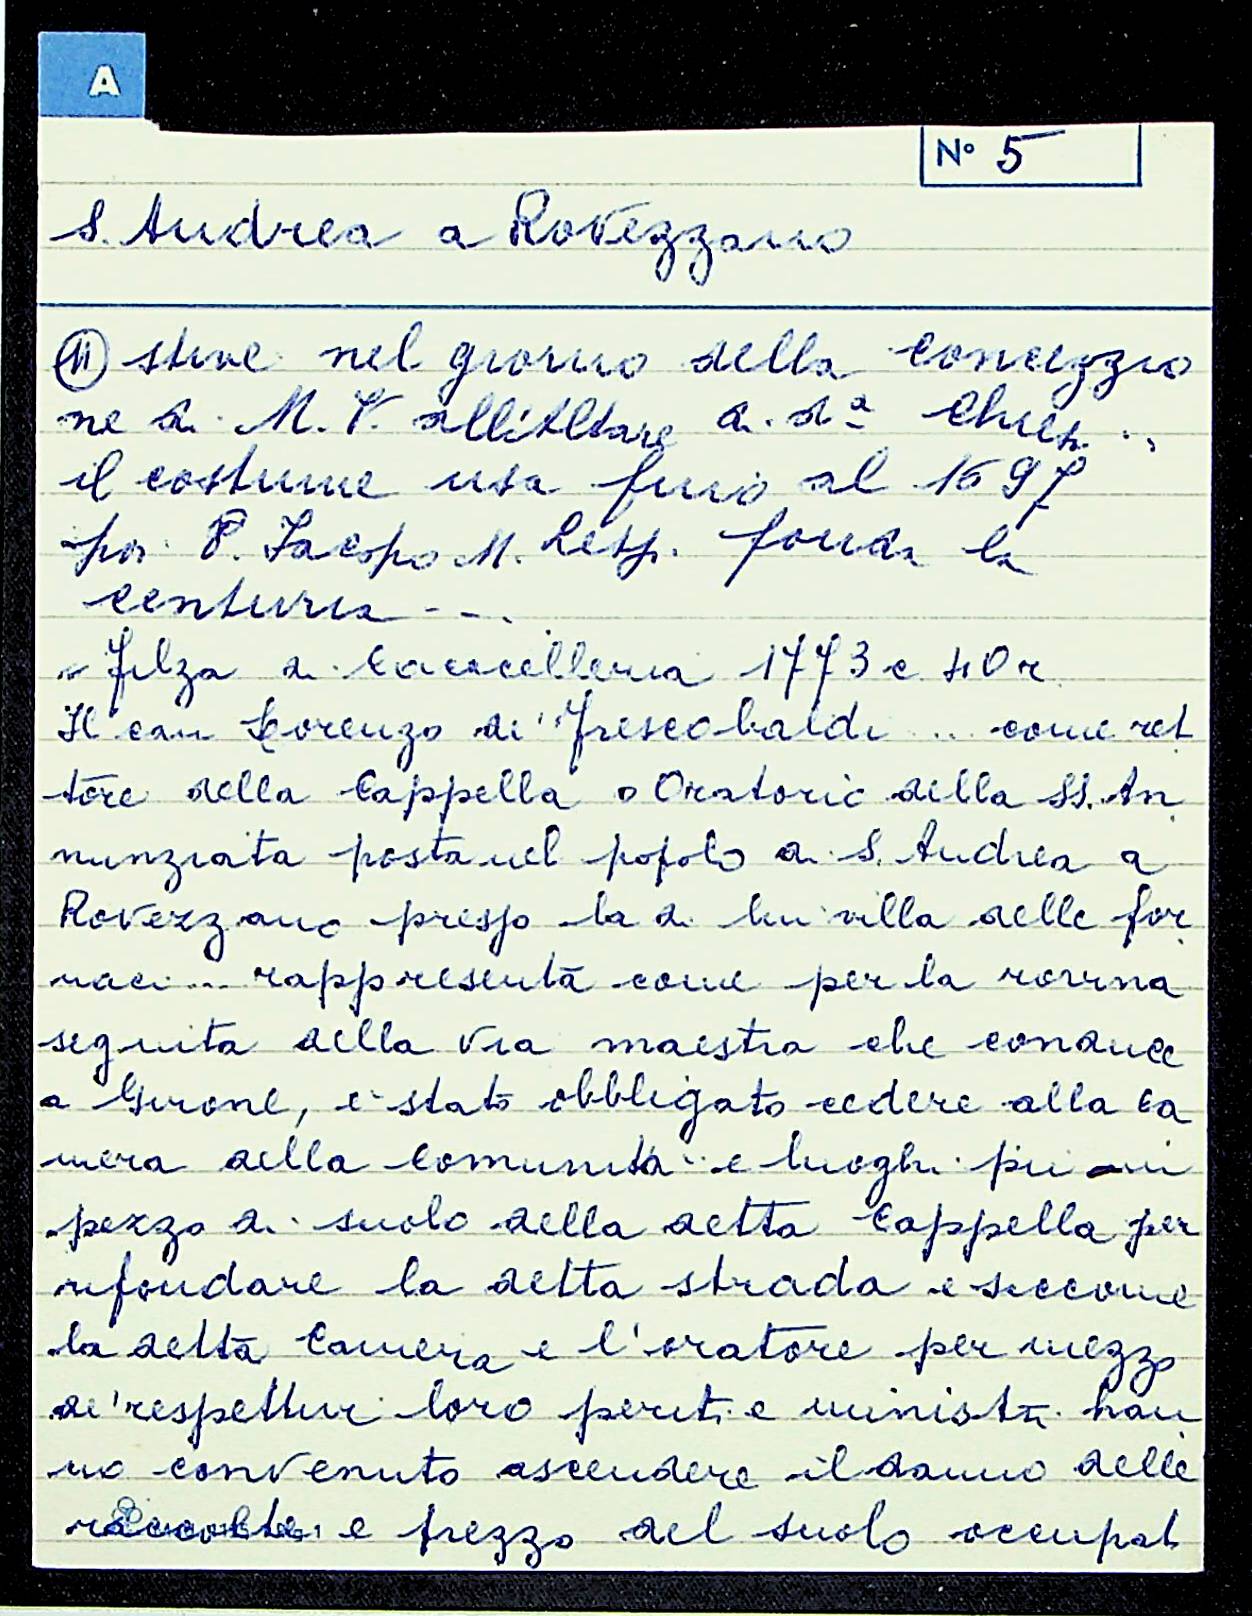 A
N° 5
S. Andrea a Rovezzano
11 stive nel giorno della concezzio
ne di M. V. all'Altare di da Chies. ..
il costume usa fino al 1697
poi P. Jacopo M. fonda la
centuria ...
Filza di Cancelleria 1773 c 40r
Il can Lorenzo di' Frescobaldi ... come ret
tore della Cappella o Oratorio della SS. An
nunziata posta nel popolo di S. Andrea a
Rovezzano presso la di lui villa delle for
naci ... rappresenta come per la rovina
seguita della via maestra che conduce
a Girone, e' stato obbligato cedere alla Ca
mera della Comunità .. e luoghi pii un
pezzo di suolo della detta Cappella per
rifondare la detta strada e siccome
la detta Camera e l'oratore per mezzo
de' respettivi loro periti e ministri han
no convenuto ascendere il danno delle
raccolte e prezzo del suolo occupat